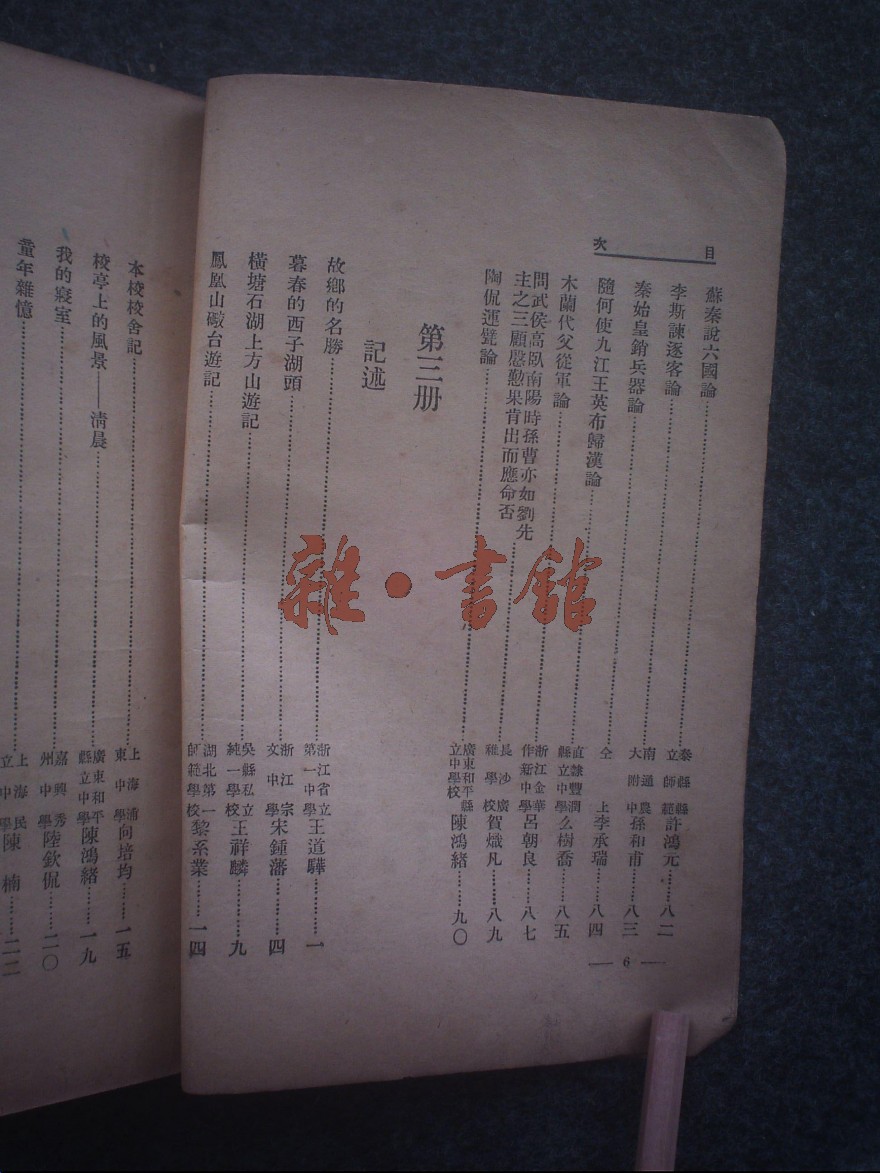 目次
蘇秦說六國論……泰縣縣立師範許鴻元……八二
李斯諫逐客論……南通農大附中孫和甫……八三
秦始皇銷兵器論……仝上李承瑞……八四
隨何使九江王英布歸漢論……直隸豐潤縣立中學么樹喬……八五
木蘭代父從軍論……浙江金華作新中學呂朝良……八七
問武侯高臥南陽時孫曹亦如劉先
主之三顧慇懃果肯出而應命否……長沙廣雅學校賀熾凡……八九
陶侃運甓論……廣東和平縣立中學校陳鴻緒……九〇
第三册
記述
故鄉的名勝……浙江省立第一中學王道驊……一
暮春的西子湖頭……浙江宗文中學宋鍾藩……四
橫塘石湖上方山遊記……吳縣私立純一學校王祥麟……九
鳳凰山礮台遊記……湖北第一師範學校黎系業……一四
— 6 —
本校校舍記……上海浦東中學向培均……一五
校亭上的風景——清晨……廣東和平縣立中學陳鴻緒……一九
我的寢室……嘉興秀州中學陸欽侃……二〇
童年雜憶……上海民立中學陳楠……二二
雜·書館